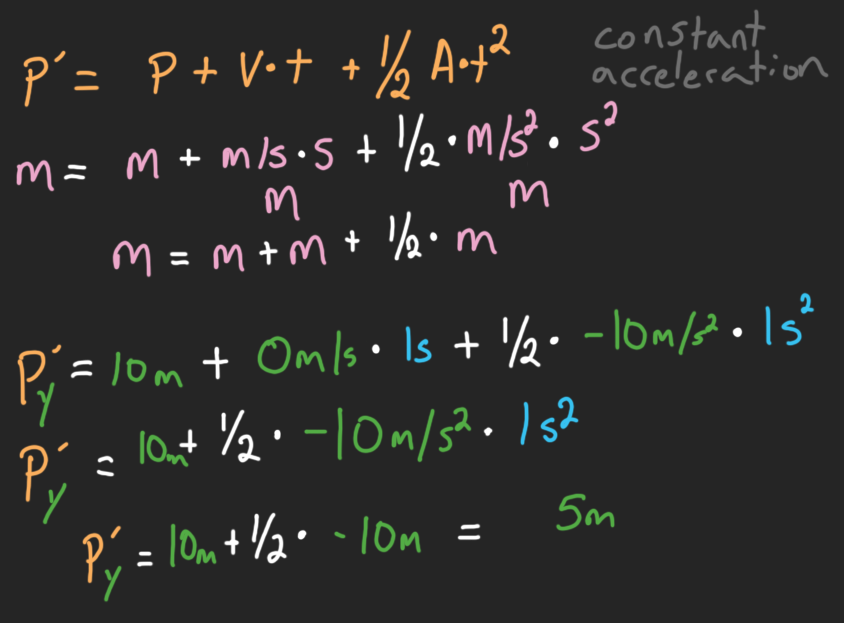 P′ = P + V·t + 1/2 A·t²
constant
acceleration
m = m + m/s·s + 1/2·m/s²·s²
m m
m = m + m + 1/2·m
P′y = 10m + 0m/s·1s + 1/2·-10m/s²·1s²
P′y = 10m + 1/2·-10m/s²·1s²
P′y = 10m + 1/2·-10m = 5m